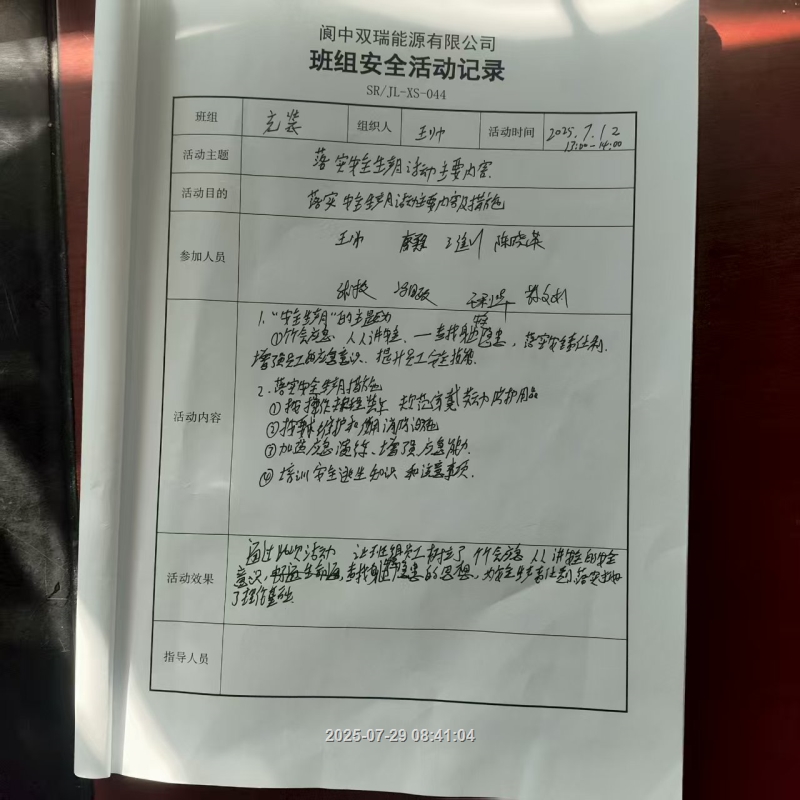 阆中双瑞能源有限公司
班组安全活动记录
SR/JL-XS-044
班组 充装 组织人 王帅 活动时间 2025.7.12
13:00-14:00
活动主题 落实安全生产月活动主要内容.
活动目的 落实安全生产月活动主要内容及措施
参加人员
王帅 陈晓英
活动内容
1."安全生产月"的主题为
①个个会应急、人人讲安全、—查找身边安全隐患,落实安全责任制.
增强员工的应急意识.提升员工安全技能.
2.落实安全生产月措施
①按操作规程装车 规范穿戴劳动力防护用品
②持续维护和使用消防设施
③加强应急演练、增强应急能力.
④培训安全逃生知识和注意事项.
活动效果
通过此次活动 让班组员工树立了个个会应急 人人讲安全的安全
意识,畅通生命通道,查找身边安全隐患的思想,为安全生产责任制落实
了理论基础.
指导人员
2025-07-29 08:41:04